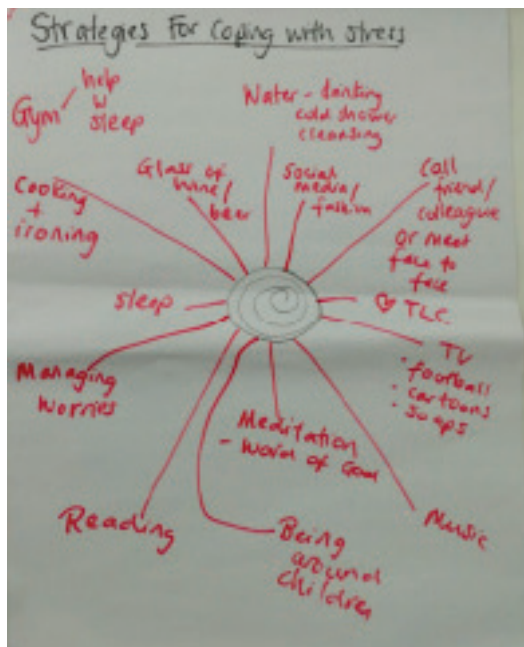 Strategies For Coping with stress
Gym
help
w
sleep
Water - drinking
cold shower
cleansing
Glass of
wine/
beer
Social
media/
fashion
Call
friend/
colleague
or meet
face to
face
Cooking
+
ironing
sleep
♡ TLC
TV
· football
- cartoons
- soaps
Managing
worries
Meditation
- Word of God
Reading
Being
around
children
Music